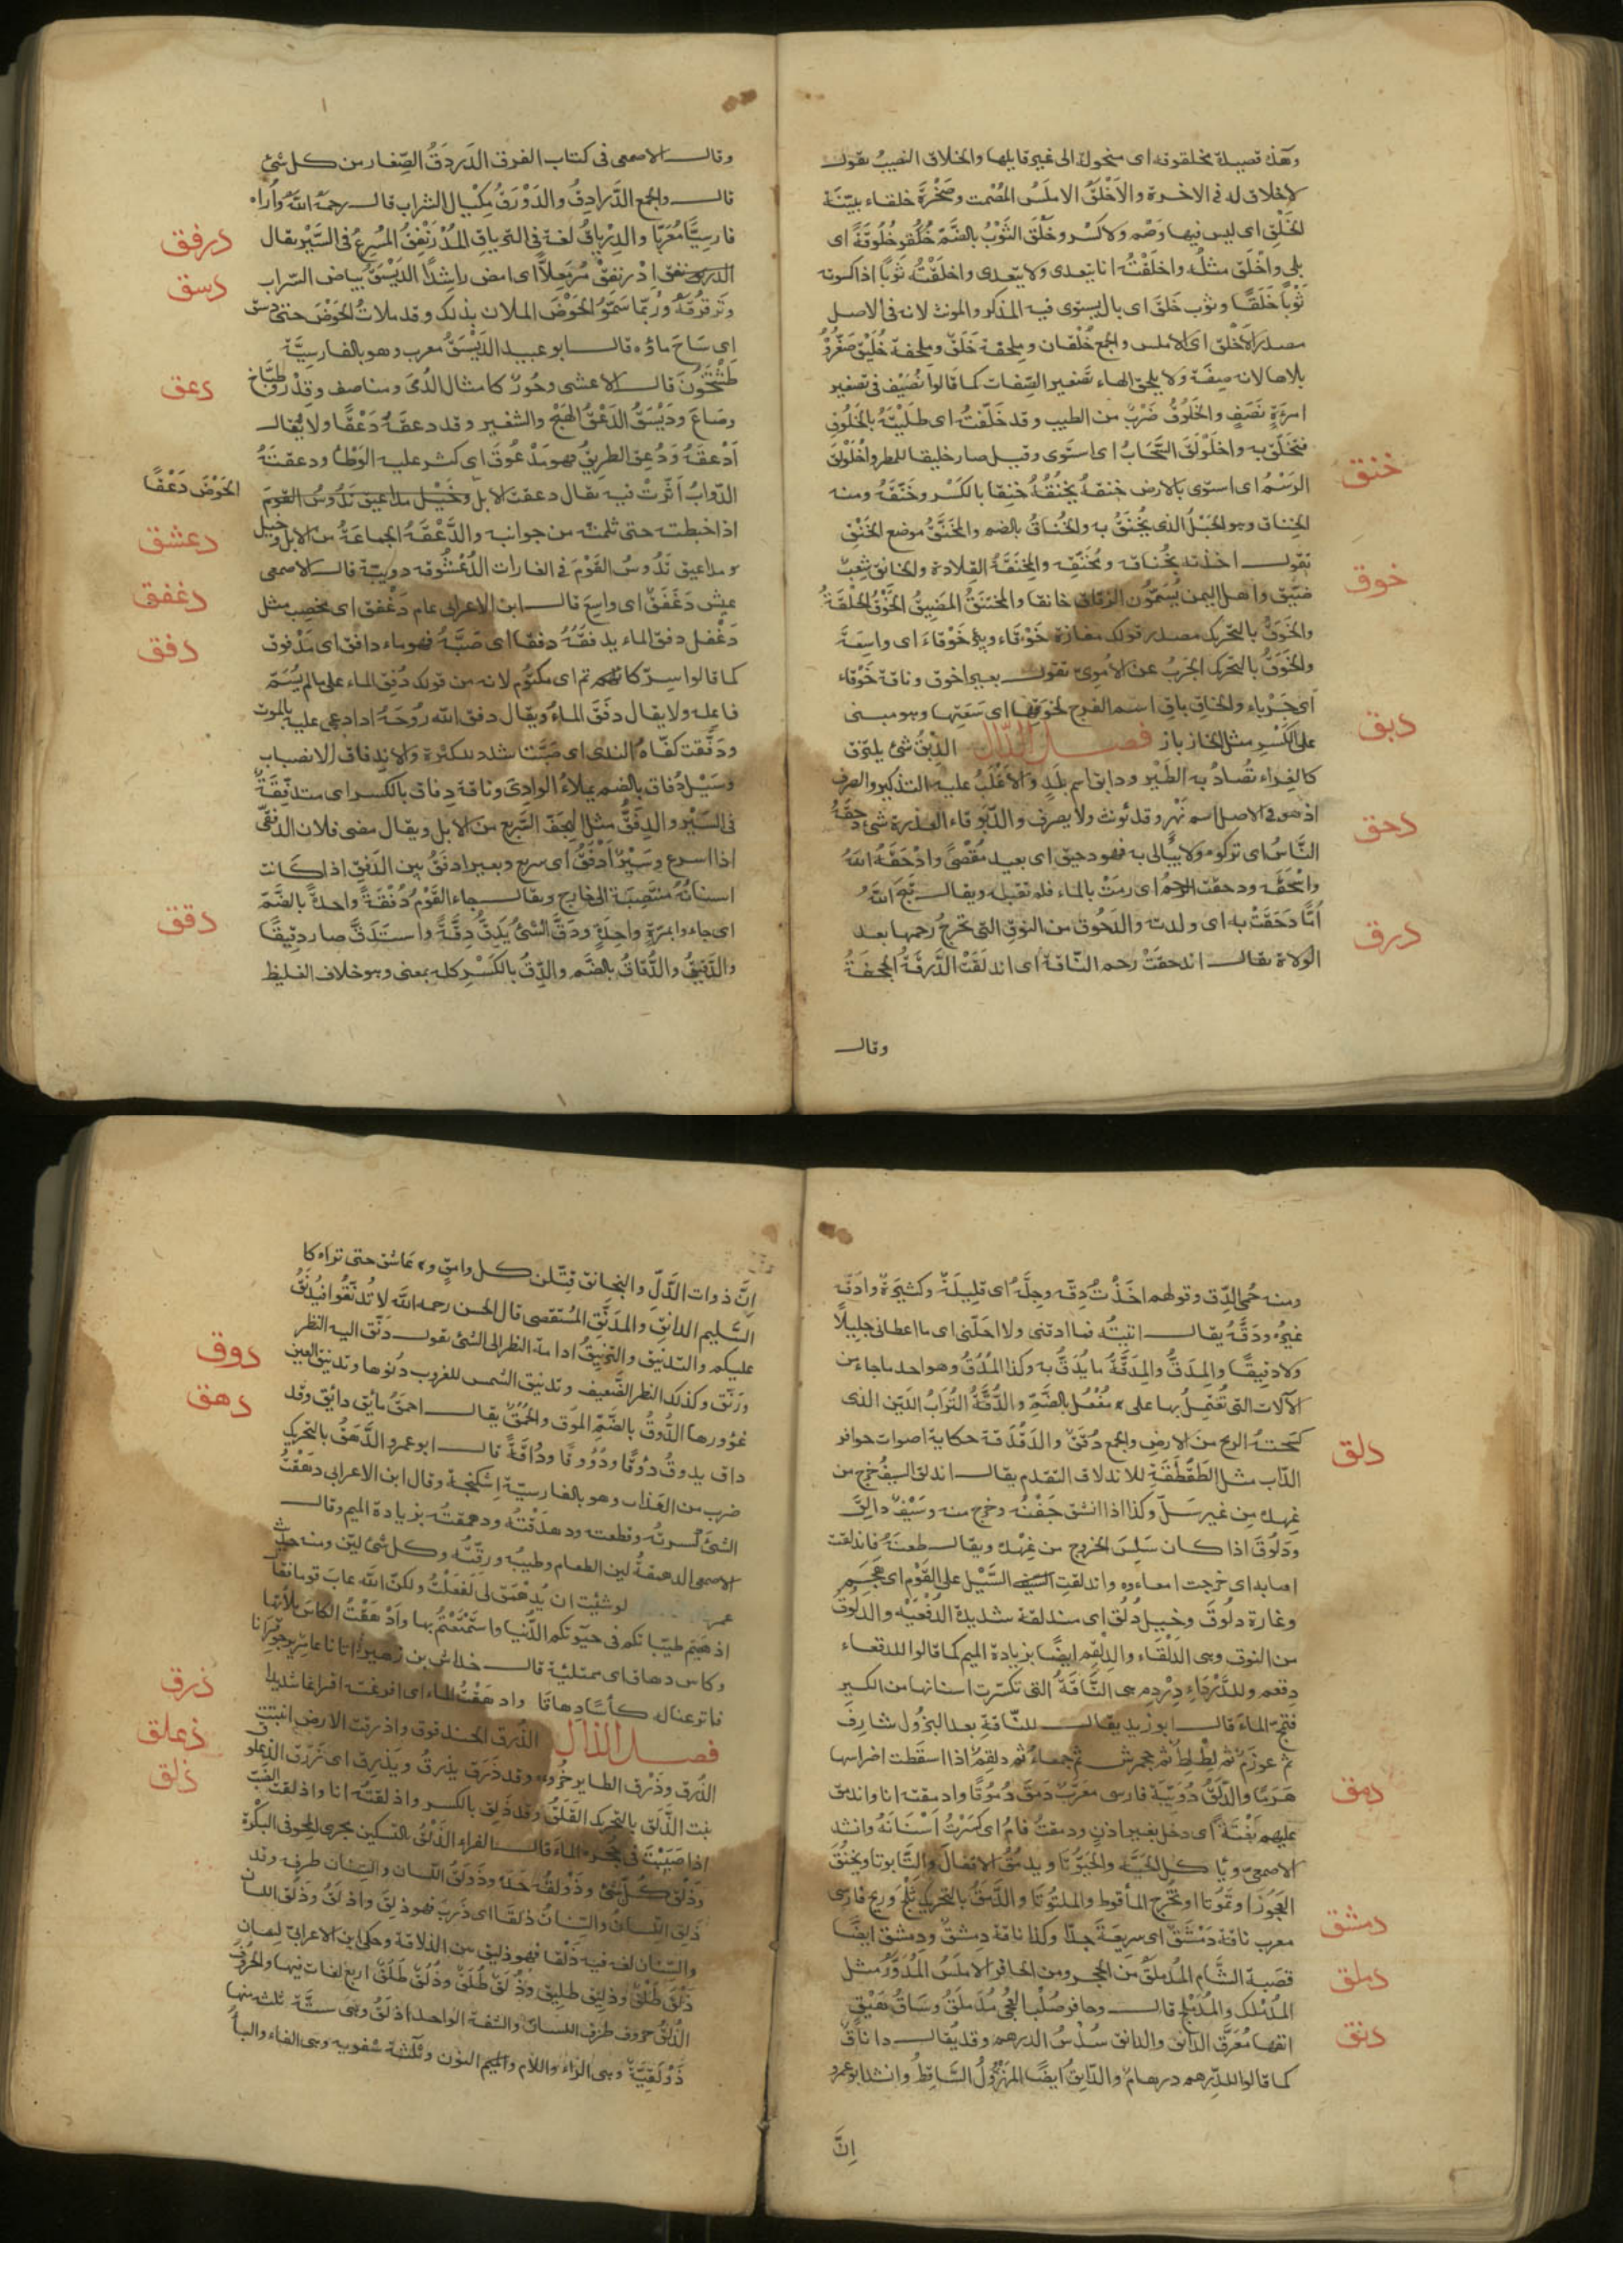 وهذه قصيدة مخلقونه اى منحولة الى غير قايلها والخلاق النصيب يقول
لاخلاق له فى الاخرة والاَخْلَقُ الاملَسُ المُصْمت وصَخْرَةٌ خلقاء بيّنَة
الخَلَقِ اى ليس فيها وَصْم ولا كَسْر وخَلُقَ الثَوْبُ بالضَمّ خُلُوقَةً اى
بلى واَخْلَق مثلُه واخلَقْتُه انا يتعدى ولا يتعدى واخلَقْتُه ثوبًا اذا كسوته
ثَوْبًا خَلَقًا وثوب خَلَق اى بال يستوى فيه المذكر والمونث لانه فى الاصل
مصدر الاَخْلَقِ اى الاملس والجمع خُلْقان وملحفة خَلَقٌ وملحفة خُلَيْق صَغَّرُوْ
بلا ها لانه صِفَة ولا يلحق الهاء تصغير الصِّفات كما قالوا نُصَيْف فى تصغير
امرءَةٍ نَصَفٍ والخَلُوْقُ ضَرْبٌ من الطيب وقد خَلَّقتُه اى طَلَيْتُهُ بالخَلُوْقِ
فتخَلَّق به واخْلَوْلَقَ السَّحَابُ اى استَوى وقيل صار خليقا للمطر واخْلَوْلَقَ
الرَسْمُ اى استوى بالارض خنقه يَخْنُقُهُ خَنِقًا بالكَسْر وخَنَّقَهُ ومنه
الخِنَاق وهو الحَبْلُ الذى يُخْنَقُ به والخُناقُ بالضم والمُخَنَّقُ موضع الخَنْقِ
تقول اخذتْه بِخُناقه ومُخَنَّقِه والمِخنَقَةُ القِلادة والخانق شِعبٌ
ضيّق واهل اليمن يُسَمُّون الزقاق خانقا والمختَنَقُ المَضِيقُ الخَوْقُ الحلقةُ
والخَوَقُ بالتحريك مصدر قولك مفازة خَوْقاء وبئر خَوْقاءُ اى واسِعَة
والخَوَقُ بالتحريك الجَرَبُ عن الاُموىّ تقول بعير اخوق وناقة خَوْقاء
اى جَرْباء والخاقِ باقِ اسم الفرج لخَوقِها اى سَعَتِها وهو مبنى
على الكَسْر مثل الخازِ بازِ فصل الدّال الدِبْقُ شئ يلتزق
كالغراء تُصادُ به الطَيْر ودابق اسم بَلَدٍ والاَغْلَبُ عليه التذكير والصرف
اذ هو فى الاصل اسم نَهْرٍ وقد يُونث ولا يصرف والدَّبوقاء العذرة شئ دَحَقَهُ
النَّاسُ اى تركوه ولا يُبالى به فهو دحيق اى بعيد مُقصًى وادْحَقَهُ اللهُ
واَسْحَقَه ودحقت الرحم اى رمَتْ بالماء فلم تقبله ويقال قَبَّحَ اللهُ
اُمًّا دَحَقَتْ به اى ولدته والدَحُوق من النوقِ التى تخرجُ رَحِمها بعد
الوِلادة يقال اندحقتْ رحم النّاقة اى اندلَقَتْ الدَّرقَةُ الحَجَفَةُ
وقال
خنق
خوق
دبق
دحق
درق
وقال الاصمعى فى كتاب الفرق الدَردَقُ الصِّغار من كل شئ
قال والجمع الدَّرادِقُ والدَوْرَقُ مِكْيال الشراب قال رحمه الله واُراه
فارسيًّا مُعَرَّبًا والدِرْياقُ لغة فى الترياقِ المُدْرَنْفِقُ المُسْرِعُ فى السَّيْر يقال
ادرنفق اِدْرَنفقْ مُرْمَعِلاًّ اى امضِ راشِدًا الدَيْسَقُ بياض السَّراب
وتَرَقْرُقُهُ وربّما سَمَّوُ الحَوْضَ الملآن بذلك وقد ملأتُ الحوْضَ حتى دسق
اى سَاحَ ماؤه قال ابو عبيد الدَيْسَقُ معرب وهو بالفارسيَّة
طَشْتَخْوَن قال الاعشى وحُورٌ كامثال الدُمَى ومناصف وقِدْرٌ وطبّاخ
وصَاعٌ ودَيْسَقُ الدَعْقُ الهَيْجُ والتنفير وقد دعقَهُ دَعْقًا ولا يُقال
اَدْعَقَهُ وَدُعِقَ الطريقُ فهو مَدْعُوقٌ اى كثر عليه الوَطْأُ ودعقتهُ
الدّوابُ اَثَّرَتْ فيه يقال دعقت الابلُ وخَيْل مداعيق تَدُوسُ القومَ
الحَوْضَ دَعْقًا
اذا خبطته حتى ثلمته من جوانبه والدَّعْقَةُ الجماعَةُ من الابل وخيل
مداعيق تَدُوسُ القَوْمَ فى الغارات الدُعْشُوقه دويبّة قال الاصمعى
عيش دَغْفَقٌ اى واسِعٌ قال ابن الاعرابى عام دَغْفق اى مخصِب مثل
دَغْفل دفق الماء يدفقُهُ دفقا اى صَبَّهُ فهو ماء دافق اى مَدْفوق
كما قالوا سِرّ كاتم اى مكتوم لانه من قولك دُفِق الماء على ما لم يُسَمّ
فاعله ولا يقال دَفَقَ الماءُ ويقال دفق الله رُوْحَهُ اذا دعى عليه بالموت
ودَفَّقت كفّاه النَدَى اى صَبَّتا شدد للكثرة والاندِفاق الانصباب
وسَيْل دُفاق بالضم يملأُ الوادِىَ وناقة دِفاق بالكسر اى متدفِّقَةٌ
فى السَيْر والدِفَقُّ مثل الهِجَفّ السَّريع من الابل ويقال مشى فلان الدِفقَّى
اذا اسرع وسَيْرٌ اَدْفَقُ اى سريع وبعير ادفَقُ بين الدَفَقِ اذا كانت
اسنانُهُ مُنْتَصِبَة الى خارج ويقال جاء القَوْمُ دُفْقَةً واحدةً بالضَّمّ
اى جاءوا بمرّةٍ واحِدَةٍ ودَقَّ الشئُ يَدِقُّ دِقَّةً واستَدَقَّ صار دقِيقًا
والدَقيقُ والدُّقاقُ بالضَّم والدِّقُ بالكَسْر كله بمعنى وهو خلاف الغليظ
درفق
دسق
دعق
دعشق
دغفق
دفق
دقق
ومنه حُمَّى الدِّق وقولهم اخَذْتُ دِقَّه وجِلَّهُ اى قليلَهُ وكثيرَهُ وادَقّه
غيرُه ودَقَّقَهُ يقال اتيتُه فما ادقّنى ولا اجَلّنى اى ما اعطانى جليلاً
ولا دقيقًا والمِدَقُّ والمِدَقَّةُ ما يُدَقُّ به وكذا المُدُقُّ وهو احد ما جاء من
الآلات التى تُعْتَمَلُ بها على مُفْعُل بالضَمّ والدُقَّةُ التُرَابُ اللَيّن الذى
كسحَتْهُ الريح من الارض والجمع دُقَقٌ والدَقْدَقة حكاية اصوات حوافر
الدّاب مثل الطَقْطَقَة للاندلاق التقدم يقال اندلق السيفُ خرج من
غِمده مِن غير سَلّ وكذا اذا انشق جَفْنُه وخرج منه وسَيْفٌ دالِق
ودَلُوقٌ اذا كان سَلِسَ الخروج من غِمْده ويقال طعنهُ فاندلقت
اصابه اى خرجت امعاءوه واندلقتِ السَيْل على القَوْم اى هَجَم
وغارة دلُوق وخيل دُلُق اى مندلقة شديدة الدُفْعَةِ والدَلُوق
من النوق وهى الدَلْقَاء والدِلْقِم ايضًا بزيادة الميم كما قالوا للدقعاء
دِقعم وللدَّرْدَاء دِرْدِم هى النَّاقَةُ التى تكسّرت اسنانها من الكبر
فتمجّ الماءَ قال ابو زيد يقال للنّاقةِ بعد البُزُول شارِف
ثم عَوزَمٌ ثم لِطْلِطٌ ثم جَحْمَرش ثم جَمعاءُ ثم دِلْقِمٌ اذا سقطت اضراسها
هَرَمًا والدَّلَقُ دُوَيْبّة فارسى معَرّبٌ دَمَقَ دُمُوقًا وادمقته انا واندمَق
عليهم بَغْتَةً اى دخل بغير اذن ودمقتُ فاهُ اى كسَرْتُ اَسْنَانَهُ وانشد
الاصمعى ويا كل الحَيَّه والحَيُّوتا ويدمُقُ الاقفالَ والتّابوتا ويخنُقُ
العجوزَ او تَمُوتا او تخرج المأقوط والملتُوتا والدَّمَقُ بالتحريك ثَلْج وريح فارسى
معرب ناقة دَمْشَقٌ اى سريعَةٌ جدًا وكذا ناقة دِمشقٌ ودمشق ايضًا
قصَبة الشَّام المُدَمْلَقُ من الحَجر ومن الحافر الاملَسُ المُدَوَّرُ مثل
المُدَمْلَك والمُدَمْلَج قال وحافر صُلْبِ العُجَى مُدَمْلَقُ وسَاقُ هَيْقٍ
انفُها مُعَرَّقُ الدانق والدانق سُدْسُ الدرهم وقد يُقال داناقٌ
كما قالوا للدِّرهم درهام والدّانِقُ ايضًا المَهْزُولُ السَّاقِطُ وانشد ابو عمرو
اِنَّ
دلق
دمق
دمشق
دملق
دنق
اِنَّ ذوات الدَّلِّ والبخانق قَتَّلْنَ كل وامق عاشق حتى تراه كا
السَّليم الدانق والمُدَنّق المُسْتَقصى قال الحسن رحمه الله لا تُدَنّقُوا فيُدَنّقُ
عليكم والتدنيق والتَرنيقُ ادامة النظر الى الشئ يقول دَنَّق اليه النظر
ورَنّق وكذلك النظر الضَّعيف وتدنيق الشمس للغروب دُنُوها وتدنيق العين
غؤورها الدُوْقُ بالضَمّ المُوق والحُمْق يقال احمَقُ مائِق دائِق وقد
داق يدوقُ دَوْقًا ودُوُوقًا ودَاقَةً قال ابو عمرو الدَّهَقُ بالتحريك
ضرب من العَذاب وهو بالفارسيّة اِشكنجة وقال ابن الاعرابى دهَقْتُ
الشئَ كسرتُه وقطعته ودهدَقْتُه ودهمقتُه بزيادة الميم وقال
الاصمعى الدهمقةُ لين الطعام وطيبُه ورِقَّتُه وكل شئ ليّن ومنه حديث
عمر لو شئت ان يُدَهْمَق لى لَفَعَلْتُ ولكنّ الله عابَ قوما فقا
اذهبتم طيّباتكم فى حيوتكم الدُنيا واسْتَمْتَعْتُم بها واَدْهَقْتُ الكاسَ ملأتها
وكاس دهاق اى ممتلئة قال خداش بن زهير اتانا عامر يرجو قِرانا
فاترعنا له كأسًا دهاقا وادهَقْتُ الماءَ اى افرغته افراغا شديدا
فصل الذال الذُرَق الحندقوق واذرقت الارض انبتت
الذُرَق وذَرْق الطاير خُروءه وقد ذَرَق يذرقُ ويَذرِق اى زَرَق الذُعلوق
نبت الذَّلَق بالتحريك القَلَقُ وقد ذَلِق بالكسر واذلقتُه انا واذلقت الضَبّ
اذا صَبَبْتَ فى جُحْره الماءَ قال الفراء الذَلْقُ بالتسكين مجرى المحور فى البَكْرة
وذَلْقُ كُلّ شئ وذَوْلَقُه حَدّه وذَوْلَقُ اللسان والسِنان طرفه وقد
ذَلِق اللسانُ والسِنانُ ذلقًا اى ذَرِبَ فهو ذلِقٌ واذلَقُ وذَلُق اللسان
والسِّنان لغة فيه ذَلْقا فهو ذليق بين الذلاقة وحكى ابن الاعرابى لسان
ذَلْقٌ طَلْقٌ وذليق طليق وذُلُقٌ طُلُقٌ وذُلَقٌ طُلَقٌ اربع لغات فيها والحُرُوْف
الذُلْقُ حروف طرَف اللسان والشفة الواحد اذلَقُ وهى ستَّة ثلثة منها
ذَوْلَقِيَّةٌ وهى الرّاء واللام والنون وثلثة شفويه وهى الفاء والباء
دوق
دهق
ذرق
ذعلق
ذلق